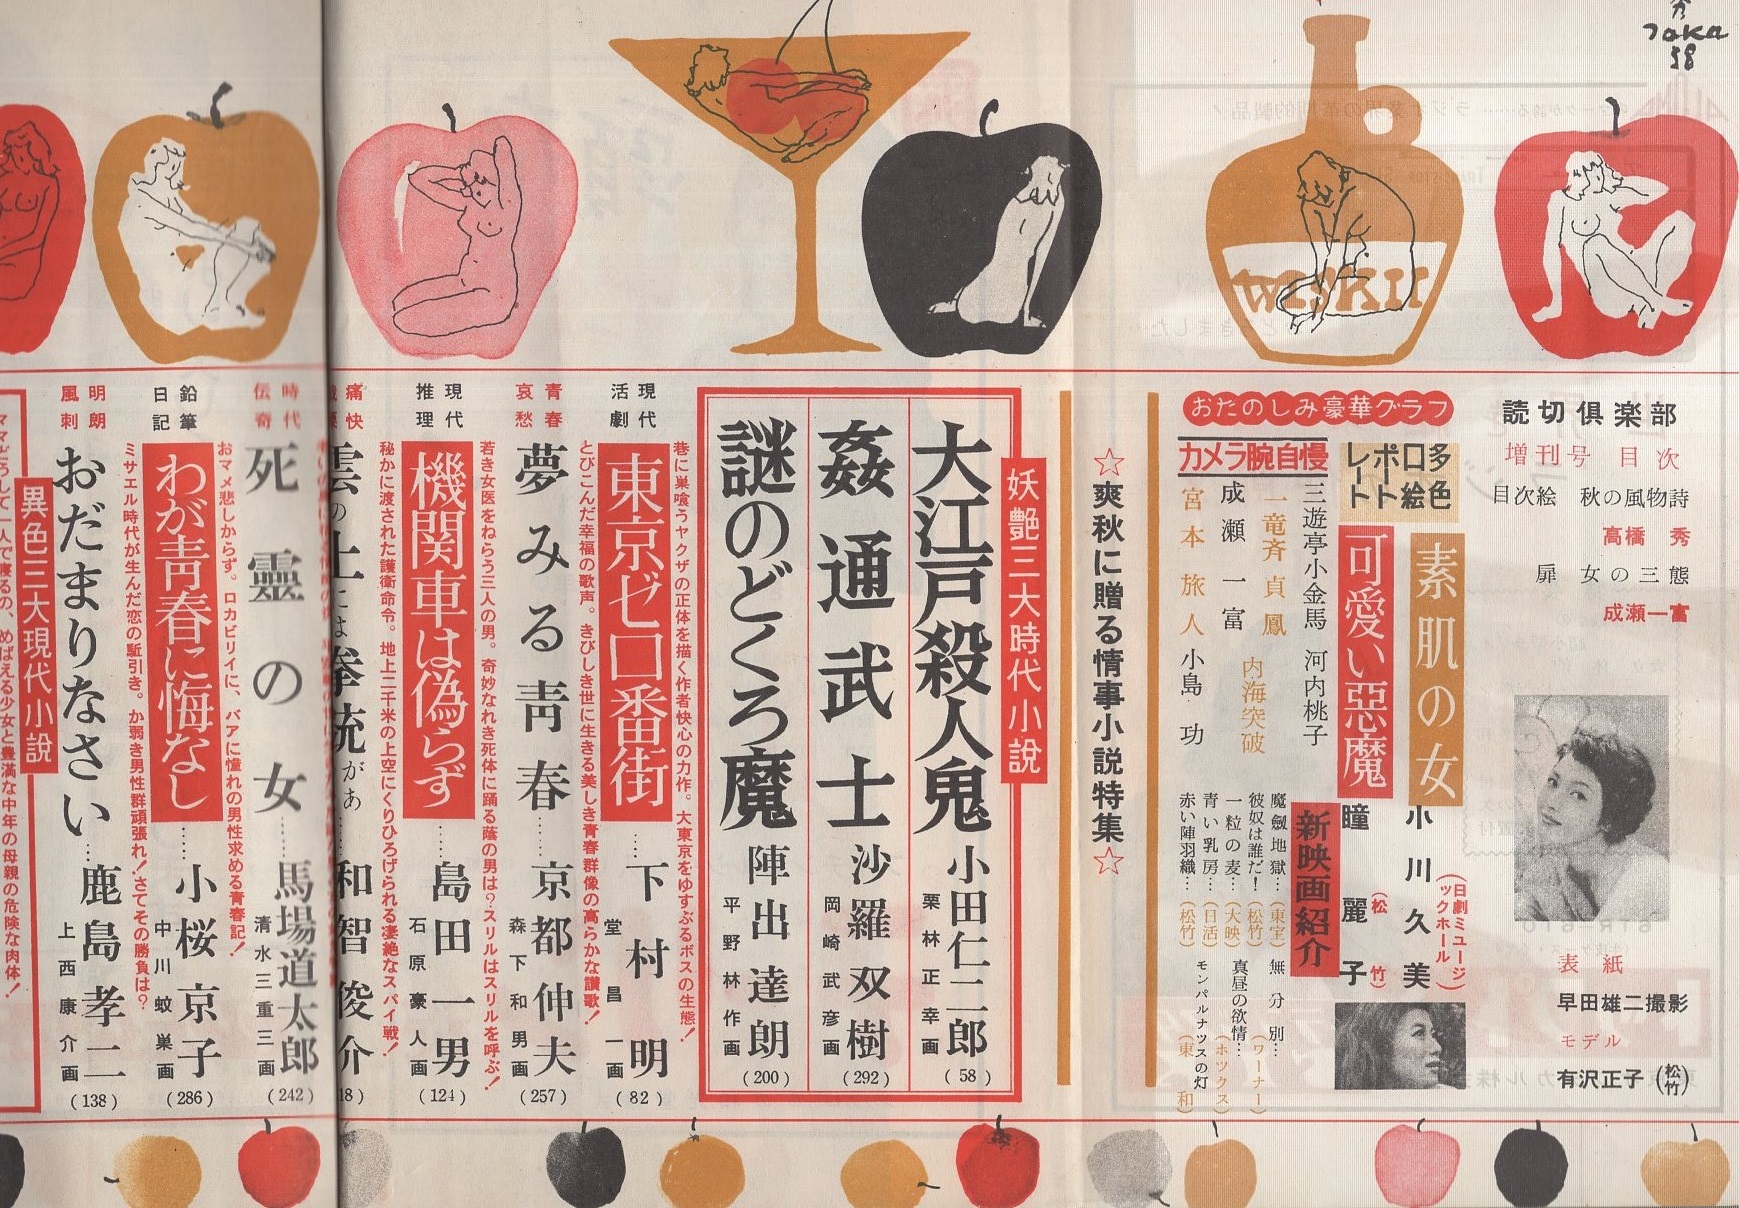 秀
Taka
58
WISKII
読切倶楽部
増刊号 目次
目次絵 秋の風物詩
高橋 秀
扉 女の三態
成瀬一富
表紙
早田雄二撮影
モデル
有沢正子(松竹)
おたのしみ豪華グラフ
多色口絵ポートレート
素肌の女
小川久美
(日劇ミュージックホール)
可愛い惡魔
瞳麗子
(松竹)
カメラ腕自慢
三遊亭小金馬 河内桃子
一竜斉貞鳳 内海突破
成瀬一富
宮本旅人 小島功
新映画紹介
魔劔地獄…(東宝)
彼奴は誰だ!(松竹)
一粒の麦…(大映)
青い乳房…(日活)
赤い陣羽織…(松竹)
無分別…(ワーナー)
真昼の欲情…(ホックス)
モンパルナツスの灯(東和)
☆爽秋に贈る情事小説特集☆
妖艶三大時代小説
大江戸殺人鬼
小田仁二郎
栗林正幸画
(58)
姦通武士
沙羅双樹
岡崎武彦画
(292)
謎のどくろ魔
陣出達朗
平野林作画
(200)
現代活劇
巷に巣喰うヤクザの正体を描く作者快心の力作。大東京をゆすぶるボスの生態!
東京ゼロ番街……下村明
堂昌一画
(82)
とびこんだ幸福の歌声。きびしき世に生きる美しき青春群像の高らかな讃歌!
青春哀愁
夢みる青春……京都伸夫
森下和男画
(257)
若き女医をねらう三人の男。奇妙なれき死体に踊る蔭の男は?スリルはスリルを呼ぶ!
現代推理
機関車は偽らず……島田一男
石原豪人画
(124)
秘かに渡された護衛命令。地上二千米の上空にくりひろげられる凄絶なスパイ戦!
痛快
雲の上には拳銃があ……和智俊介
時代伝奇
死靈の女……馬場道太郎
清水三重三画
(242)
おマメ悲しからず。ロカビリイに、バアに憧れの男性求める青春記!
鉛筆日記
わが靑春に悔なし……小桜京子
中川蚊巣画
(286)
ミサエル時代が生んだ恋の駈引き。か弱き男性群頑張れ!さてその勝負は?
明朗風刺
おだまりなさい…鹿島孝二
上西康介画
(138)
異色三大現代小説
一人で寝るの、めばえる少女と豊満な中年の母親の危険な肉体!